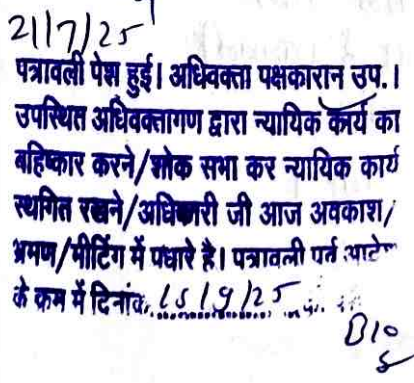 21/7/25
पत्रावली पेश हुई। अधिवक्ता पक्षकारान उप.।
उपस्थित अधिवक्तागण द्वारा न्यायिक कार्य का
बहिष्कार करने/शोक सभा कर न्यायिक कार्य
स्थगित रखने/अधिकारी जी आज अवकाश/
भ्रमण/मीटिंग में पधारे है। पत्रावली पूर्व आदेश
के क्रम में दिनांक 15/9/25